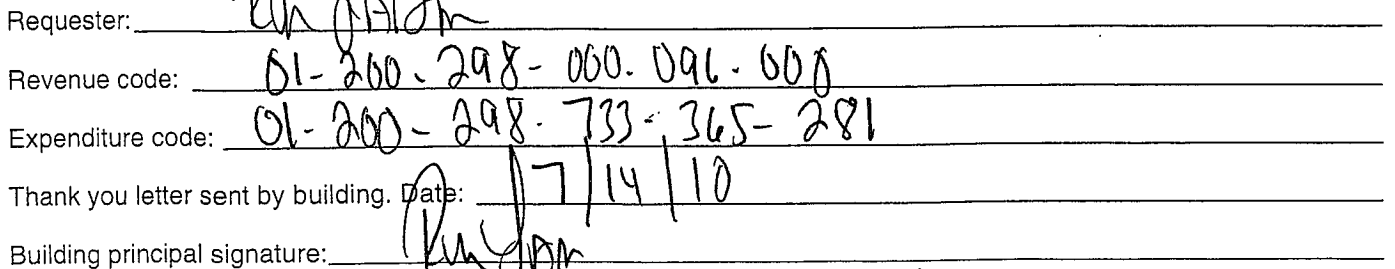 Requester:
Revenue code: 01-200-298-000-096-000
Expenditure code: 01-200-298-733-365-281
Thank you letter sent by building. Date: 7/14/10
Building principal signature: